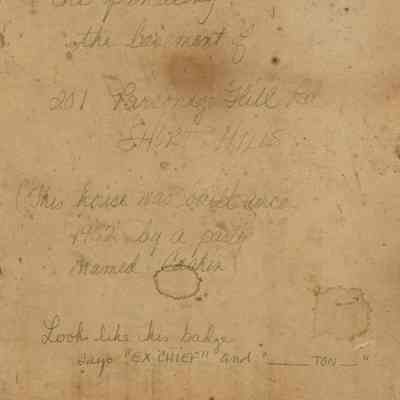 the
the basement of
201 Parsonage Hill Rd
SHORT HILLS
(This house was built once
19 2 by a party
named
Look like his badge
says "EX-CHIEF" and "____ TON _"